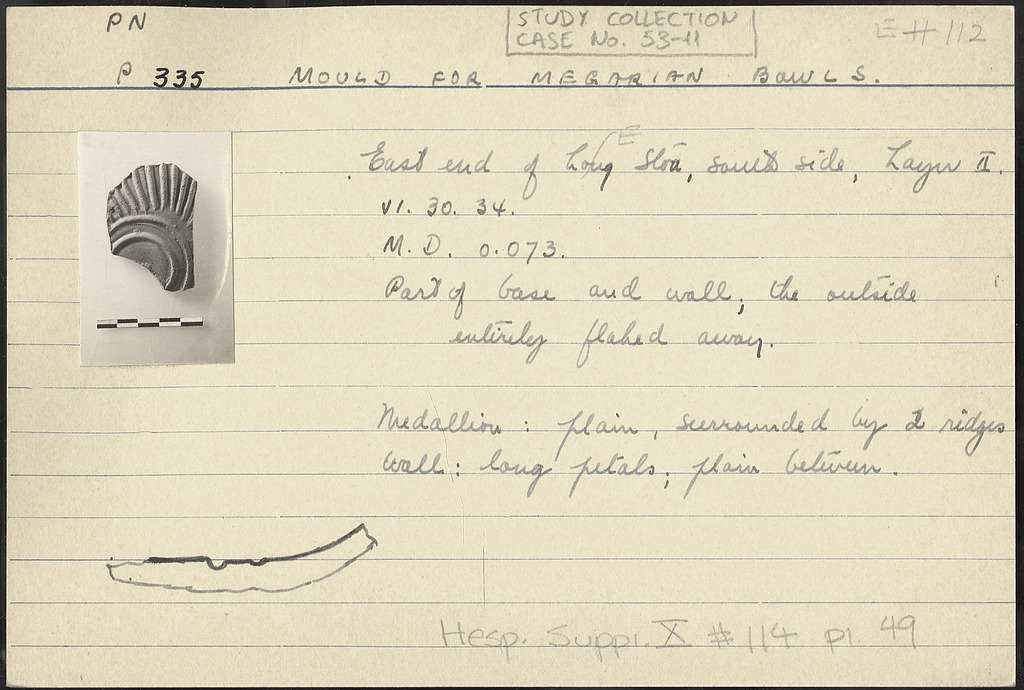 PN
STUDY COLLECTION
CASE No. 53-11
E # 112
P 335 MOULD FOR MEGARIAN BOWLS.
E
East end of Long Stoa, south side, Layer II.
VI. 30. 34.
M. D. 0.073.
Part of base and wall; the outside
entirely flaked away.
Medallion: plain, surrounded by 2 ridges
Wall: long petals; plain between.
Hesp. Suppl. X # 114 pl. 49